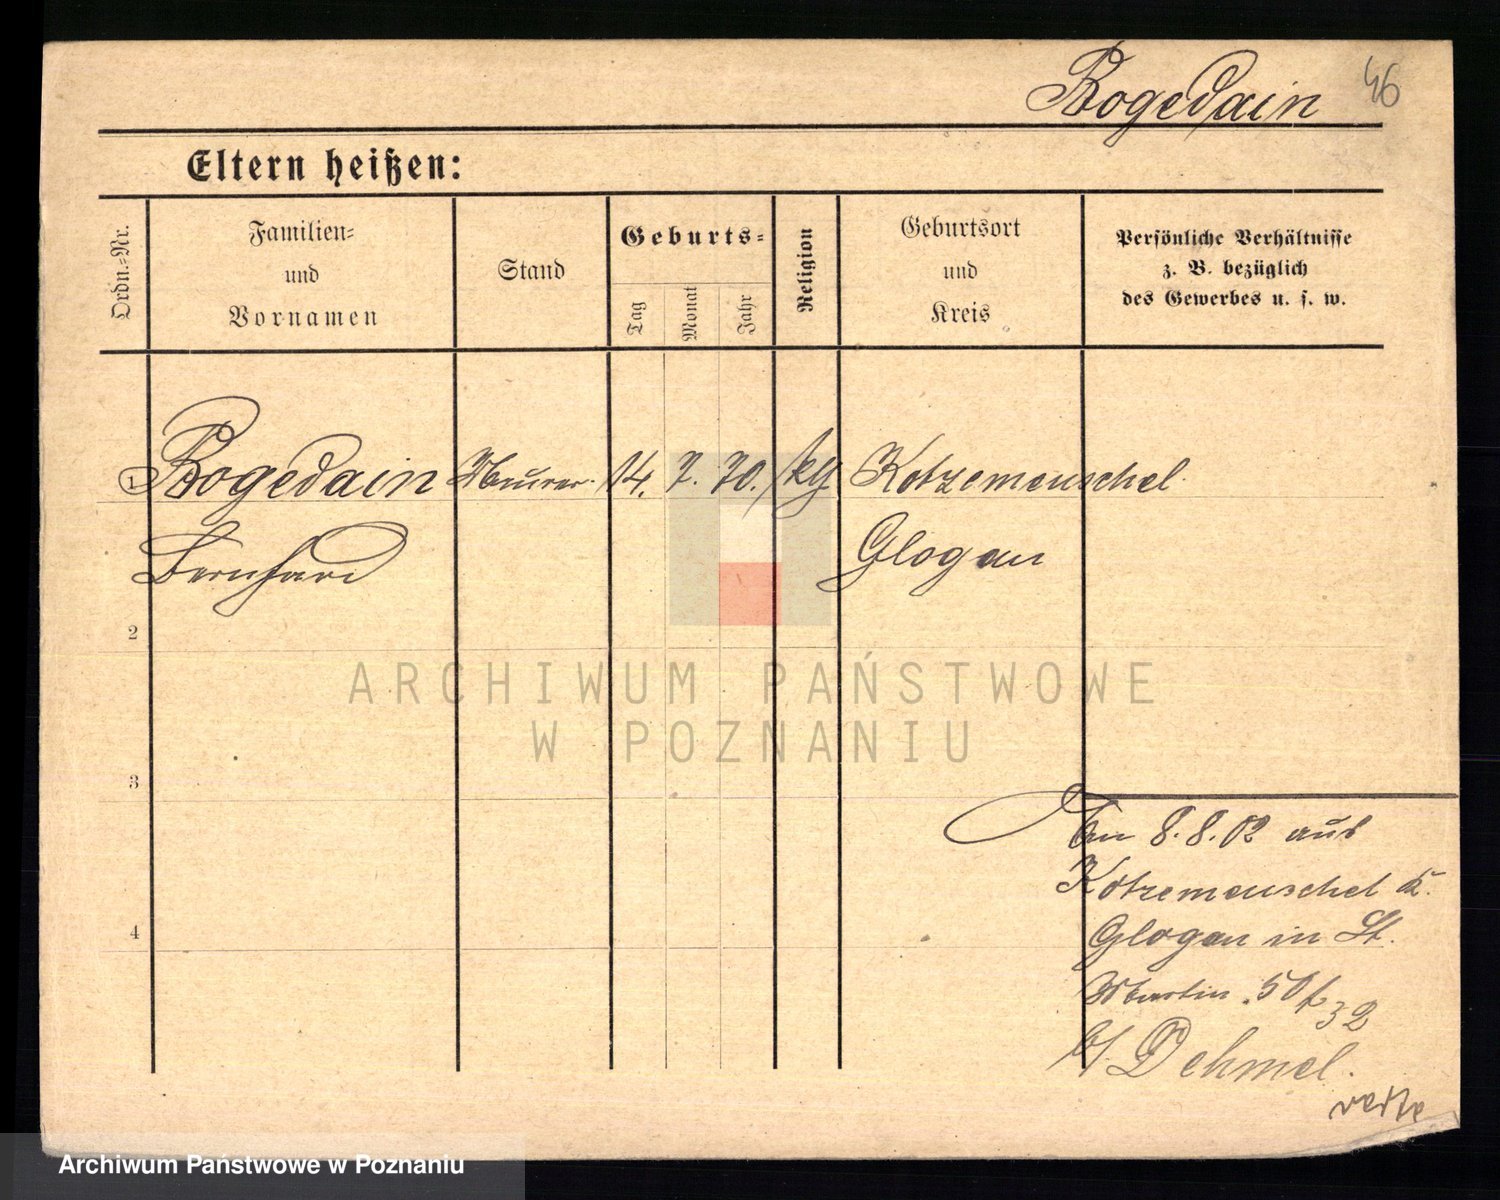 Bogedain 46
Eltern heißen:
Ordn.-Nr.
Familien-
und
Vornamen
Stand
Geburts-
Tag
Monat
Jahr
Religion
Geburtsort
und
Kreis
Persönliche Verhältnisse
z. B. bezüglich
des Gewerbes u. s. w.
1 Bogedain Maurer. 14. 7. 70. Kotzemeuschel.
Bernhard Glogau
2
3
4
ARCHIWUM PAŃSTWOWE
W POZNANIU
An 8.8.02 aus
Kotzemeuschel K.
Glogau in St.
Martin 50/
32
b/. Dehmel.
Archiwum Państwowe w Poznaniu